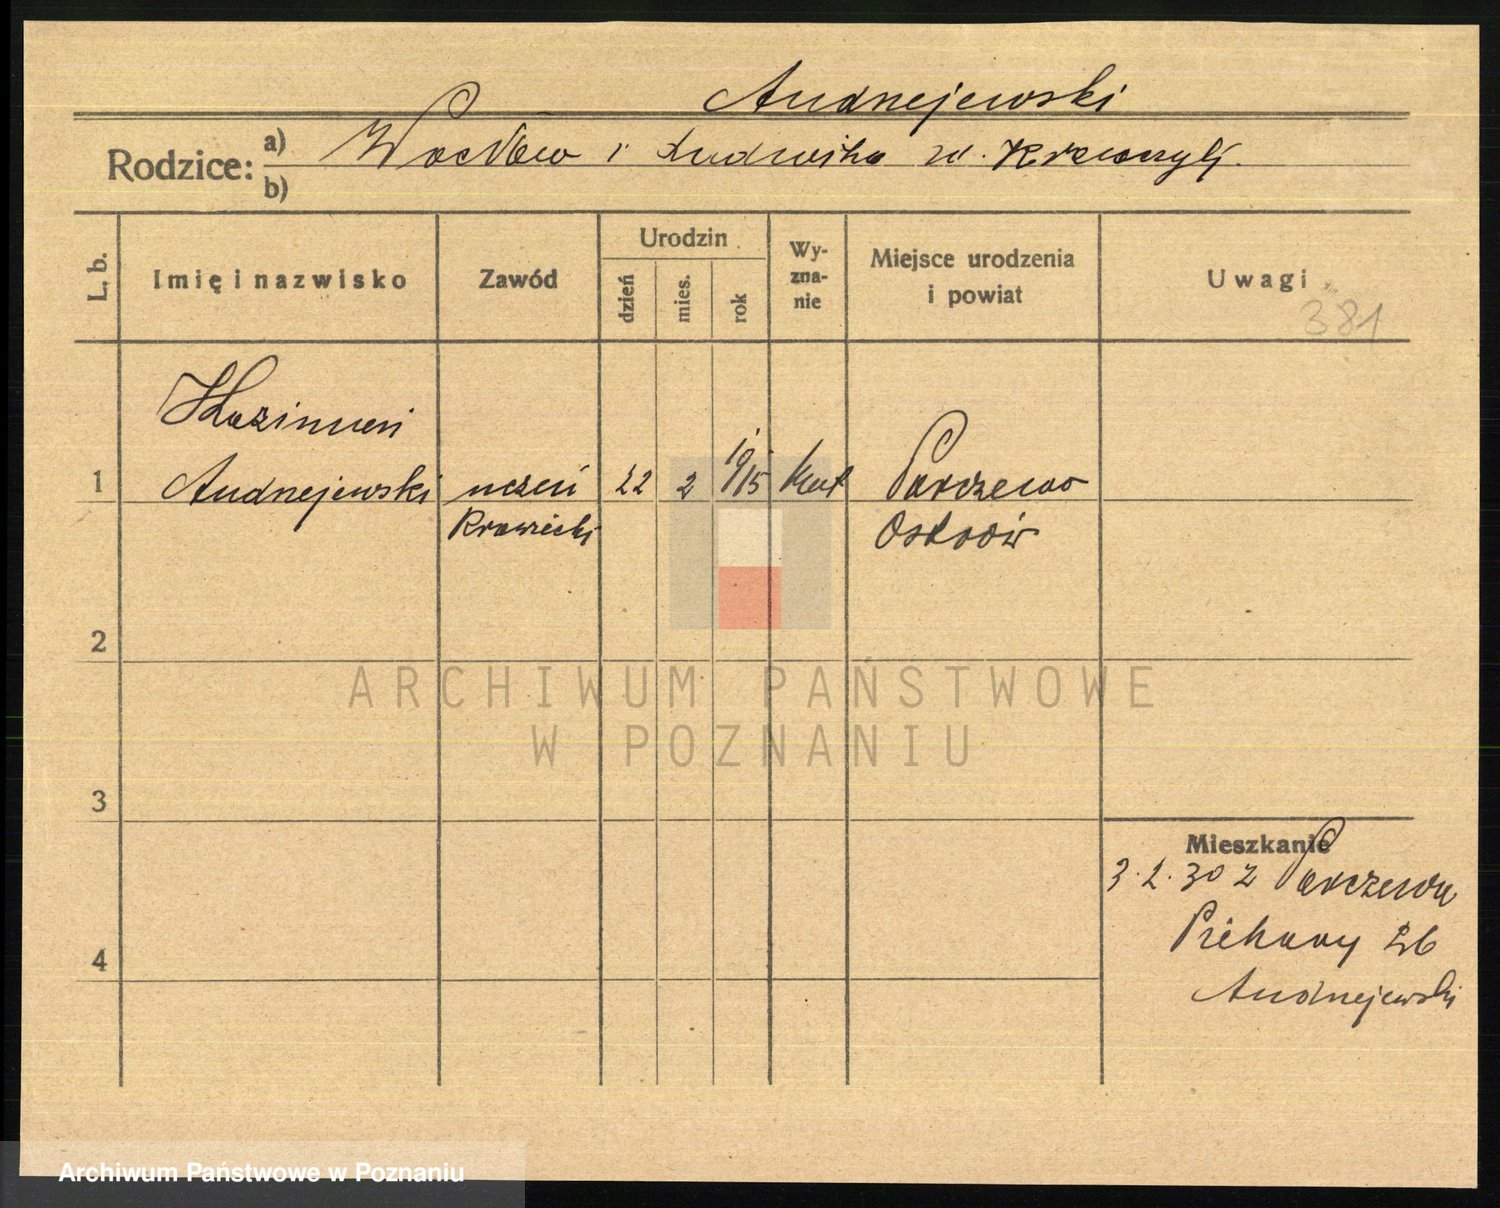 Andrzejewski
Rodzice: a) Wacław i Ludwika zd. Krawczyk
b)
L. b.
Imię i nazwisko
Zawód
Urodzin
dzień
mies.
rok
Wy-
zna-
nie
Miejsce urodzenia
i powiat
Uwagi
381
Kazimierz
1 Andrzejewski uczeń 22 2 1915 kat Parczewo
Krawiecki Ostrów
2
3
4
Mieszkanie
3.2.30 z Parczewa
Piekary 26
Andrzejewski
ARCHIWUM PAŃSTWOWE
W POZNANIU
Archiwum Państwowe w Poznaniu